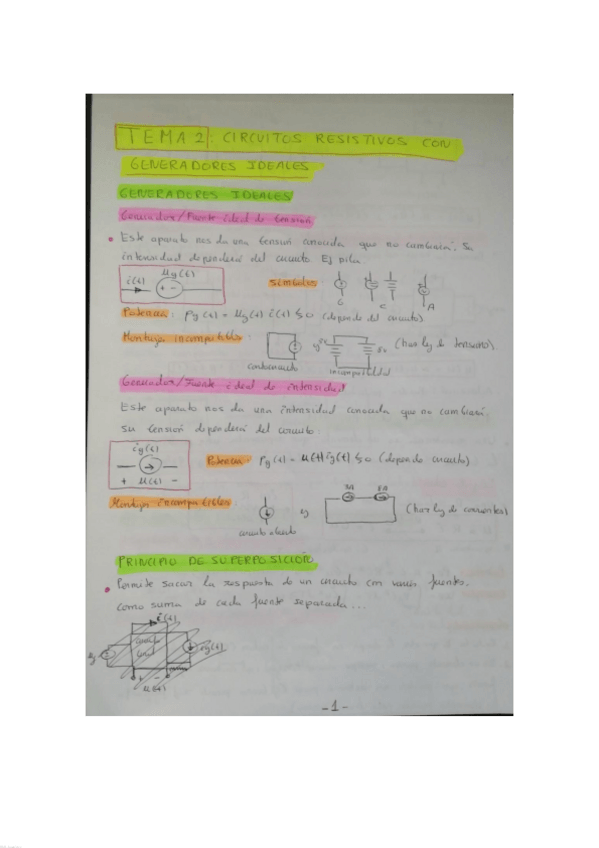 TEMA 2: CIRCUITOS RESISTIVOS CON
GENERADORES IDEALES
GENERADORES IDEALES
Generador/Fuente ideal de tensión
• Este aparato nos da una tensión conocida que no cambiará. Su
intensidad dependerá del circuito. Ej pila.
i(t) ug(t)
+ -
Símbolos
C C A
Potencia: Pg(t) = ug(t) i(t) ≶ 0 (depende del circuito).
Montajes incompatibles: (hay ley de tensiones).
cortocircuito incompatibilidad
Generador/Fuente ideal de intensidad
Este aparato nos da una intensidad conocida que no cambiará.
su tensión dependerá del circuito.
ig(t)
+ u(t) -
Potencia: Pg(t) = u(t) ig(t) ≶ 0 (depende circuito)
Montajes incompatibles
circuito abierto
ej
(hay ley de corrientes)
PRINCIPIO DE SUPERPOSICIÓN
• Permite sacar la respuesta de un circuito con varias fuentes.
como suma de cada fuente separada...
i(t)
ig(t)
+ -
u(t)
-1-